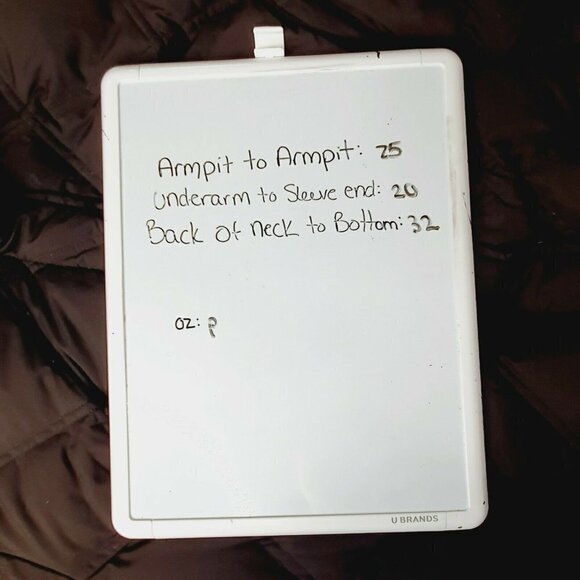 Armpit to Armpit: 25
Underarm to Sleeve end: 20
Back of neck to Bottom: 32
oz: p
U BRANDS